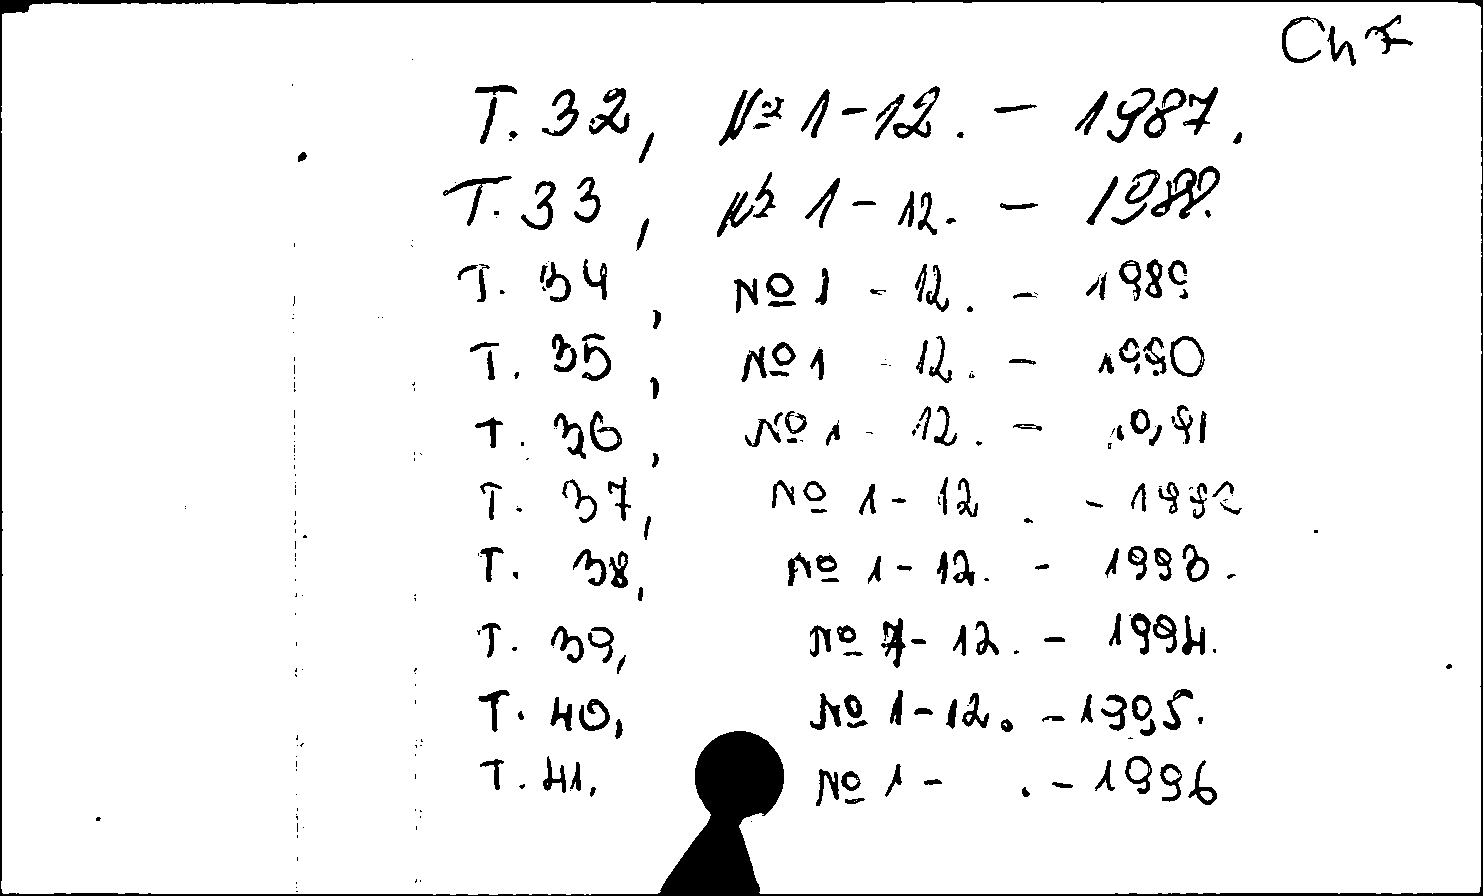 Ch
Т. 32, № 1-12. - 1987.
Т. 33, № 1-12. - 1988.
Т. 34, № 1 - 12. - 1989
Т. 35, № 1 - 12. - 1990
Т. 36, № 1 - 12. -
Т. 37, № 1-12. - 1992
Т. 38, № 1-12. - 1993.
Т. 39, № 7-12. - 1994.
Т. 40, № 1-12. - 1995.
Т. 41. № 1- . - 1996